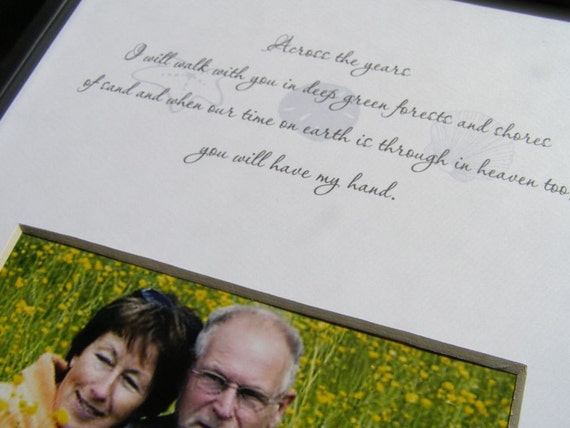 Across the years
I will walk with you in deep green forests and shores
of sand and when our time on earth is through in heaven too,
you will have my hand.